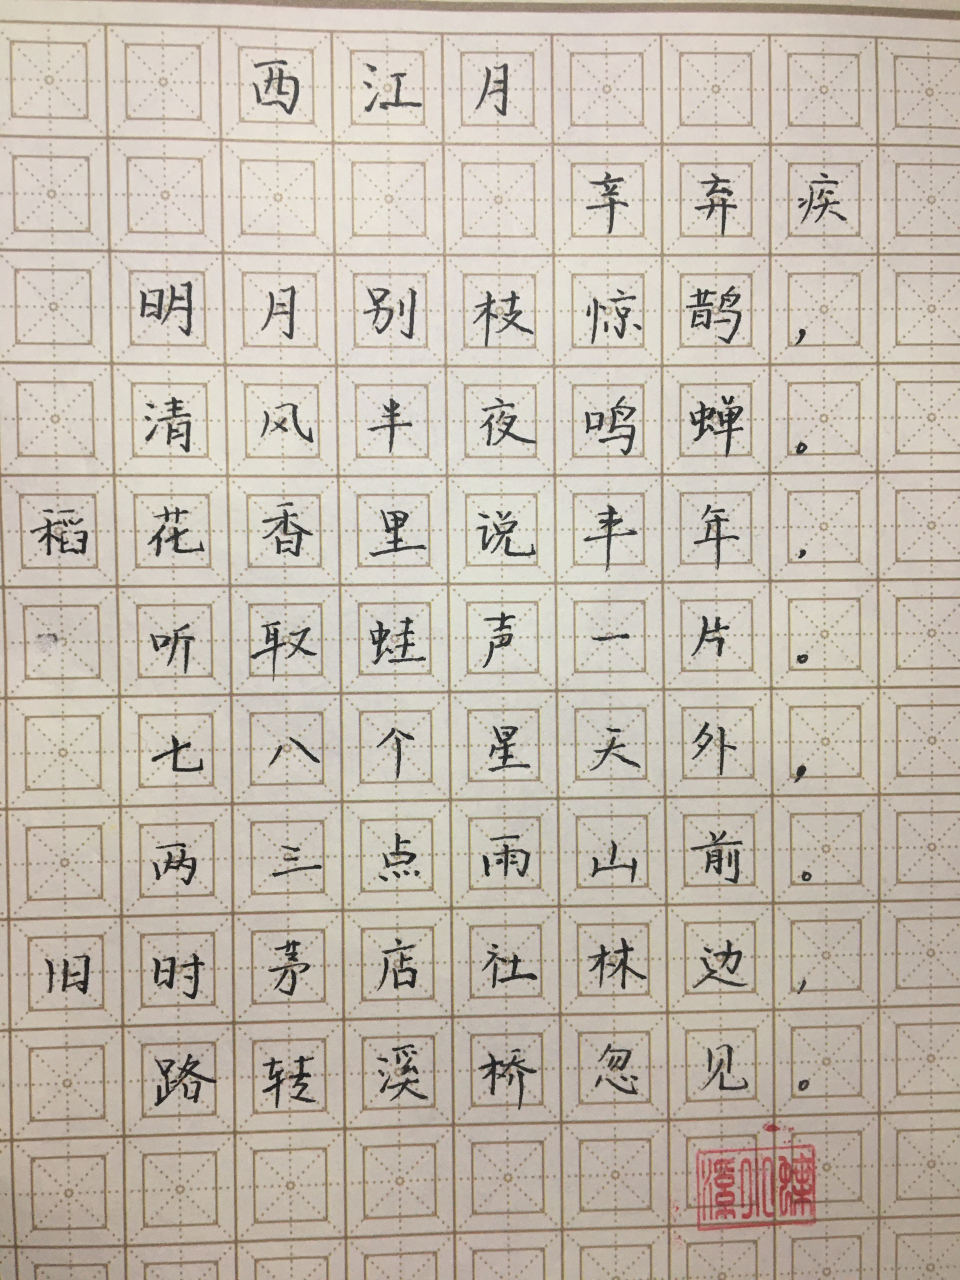 西江月
辛弃疾
明月别枝惊鹊,
清风半夜鸣蝉。
稻花香里说丰年,
听取蛙声一片。
七八个星天外,
两三点雨山前。
旧时茅店社林边,
路转溪桥忽见。